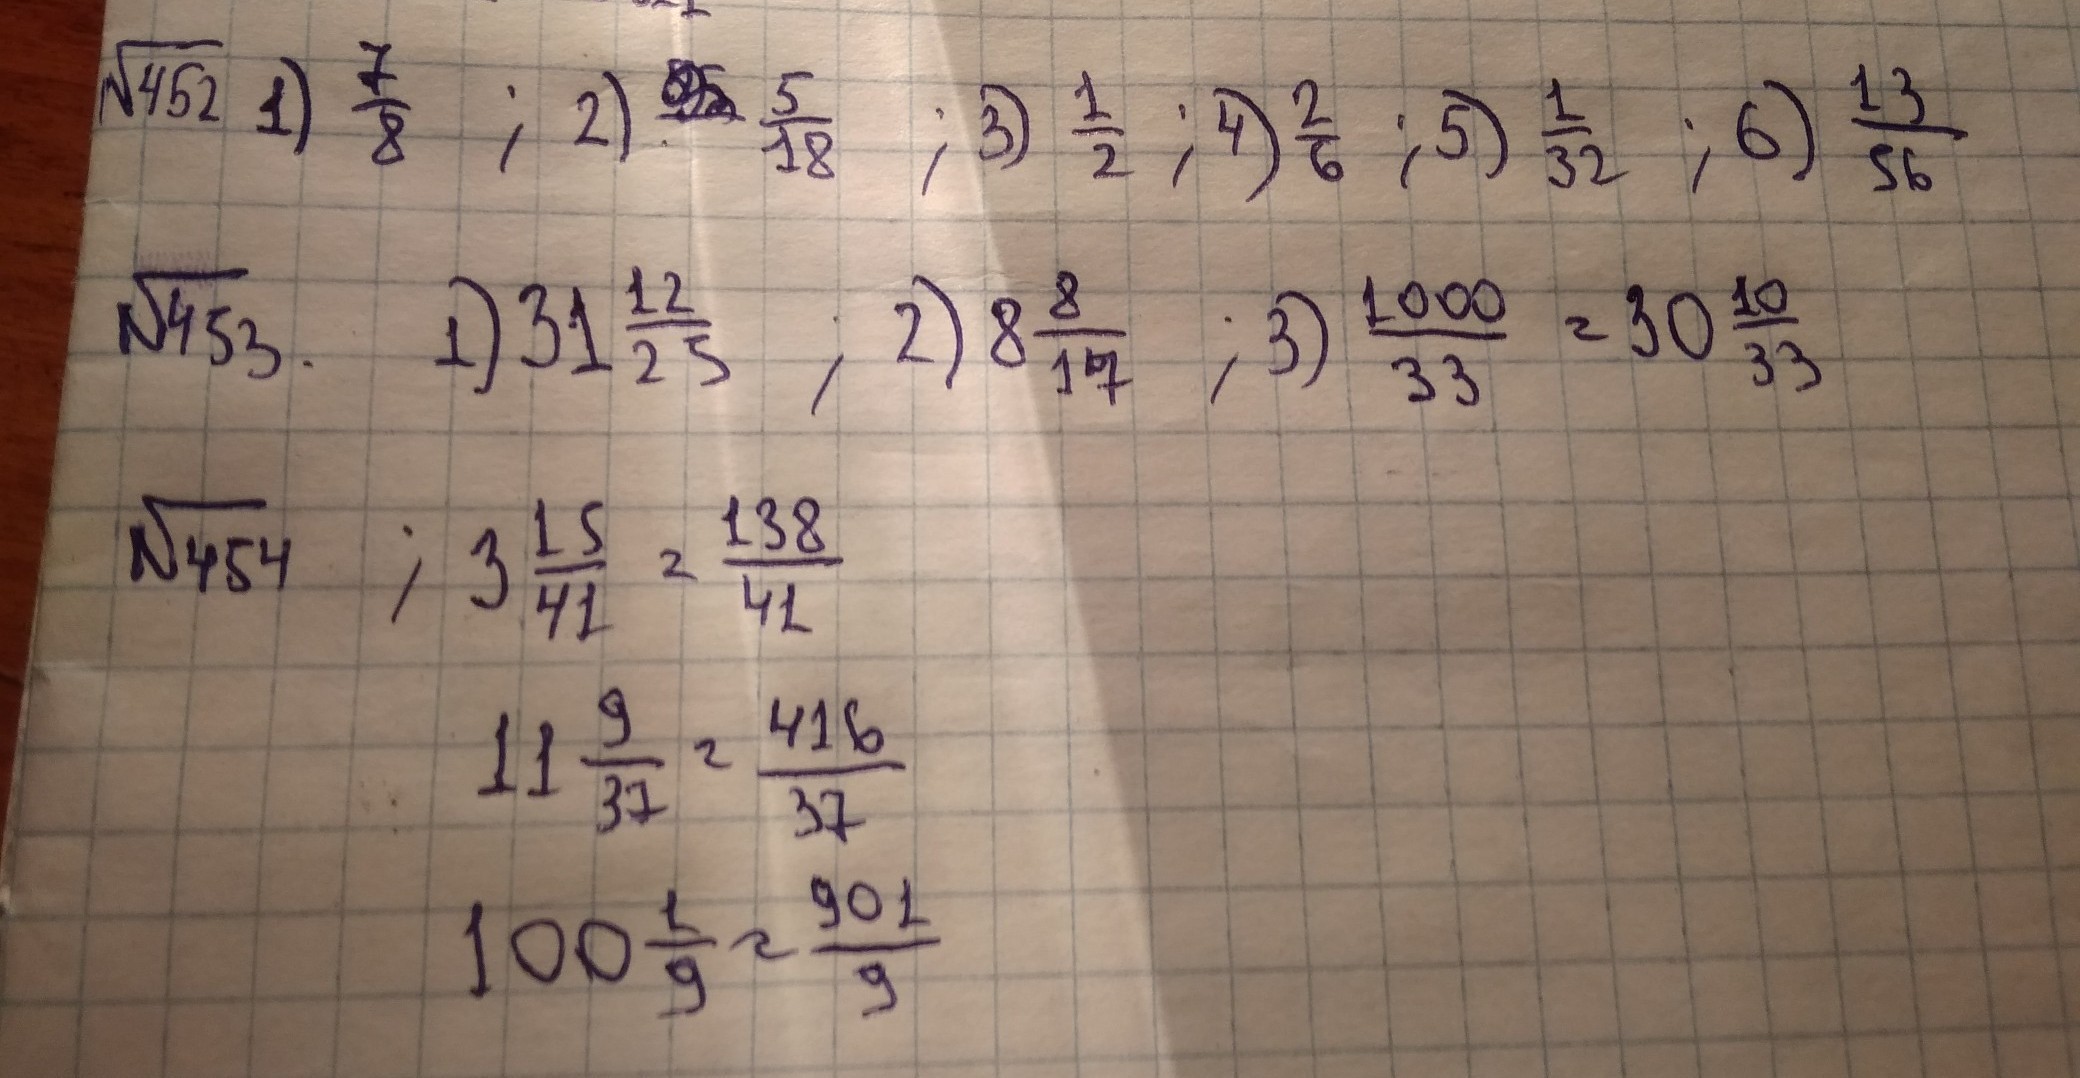 №452 1) 7/8 ; 2) 5/18 ; 3) 1/2 ; 4) 2/6 ; 5) 1/32 ; 6) 13/56
№453. 1) 31 12/25 ; 2) 8 8/17 ; 3) 1000/33 = 30 10/33
№454 ; 3 15/41 = 138/41
11 9/37 = 416/37
100 1/9 = 901/9